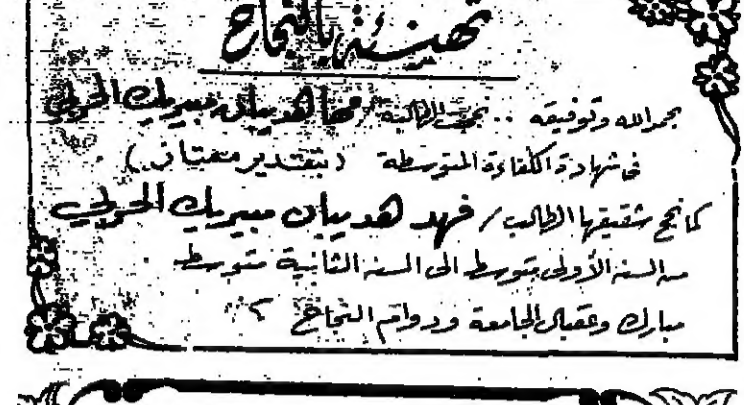 تهنئة بالنجاح
بحمد الله وتوفيقه .. نجحت الطالبة / مها هديبان مبيريك الحربي
في شهادة الكفاءة المتوسطة (بتقدير ممتاز)
كما نجح شقيقها الطالب / فهد هديبان مبيريك الحربي
من السنة الأولى متوسط الى السنة الثانية متوسط
مبارك وعقبال الجامعة ودوام النجاح